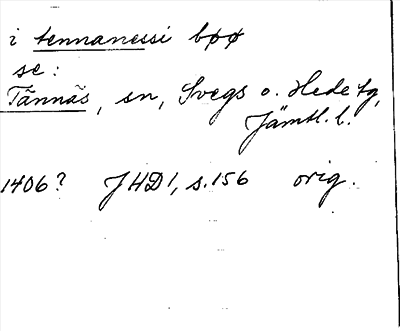 i tennanessi bøø
se:
Tännäs, sn, Svegs o. Hede tg,
Jämtl. l.
1406? JHD 1, s. 156 orig.